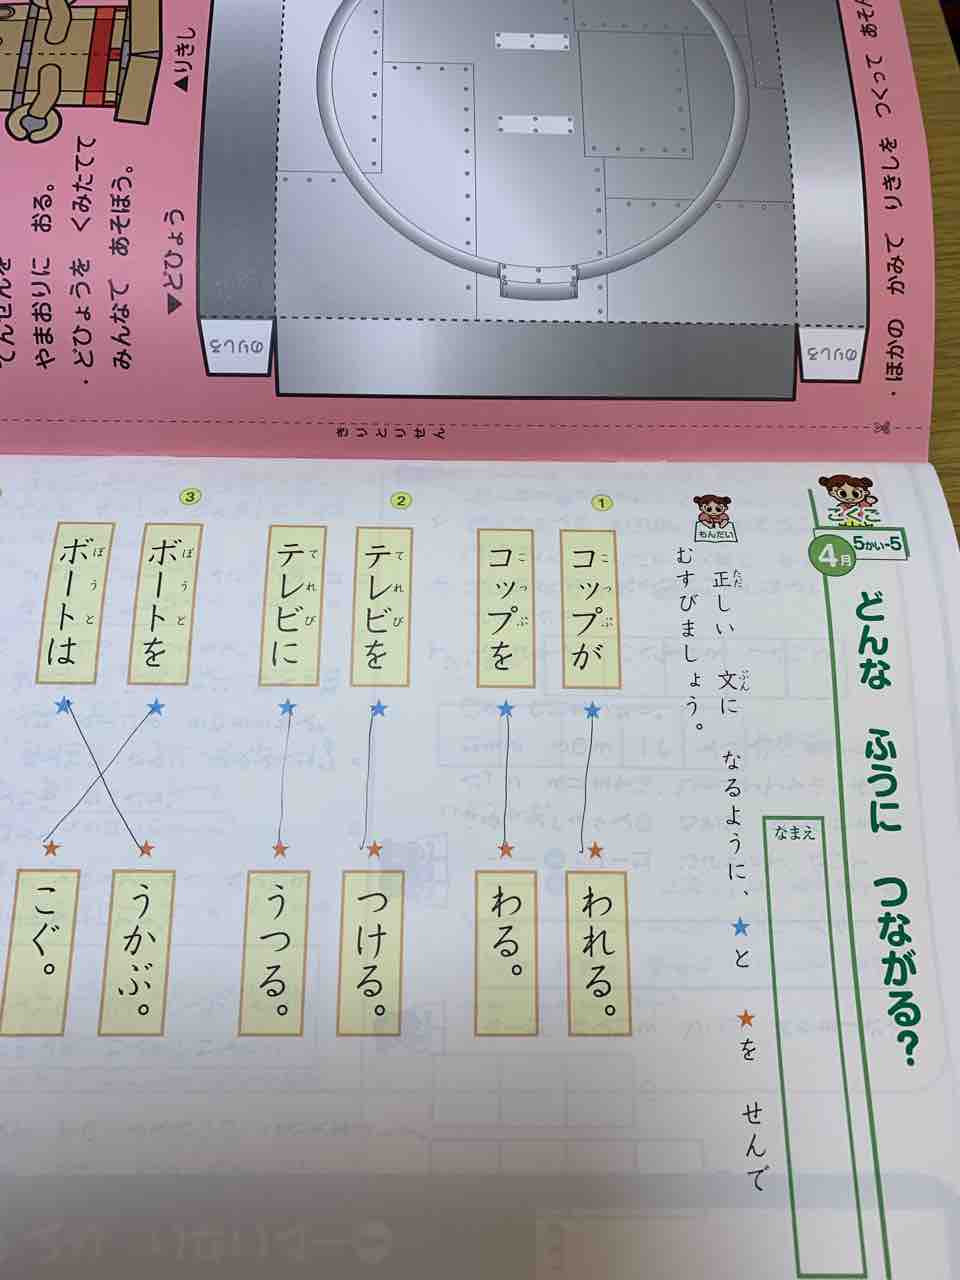 ▲りきし
▼どひょう
やまおりに おる。
・どひょうを くみたてて
みんなで あそぼう。
のりしろ
のりしろ
・ほかの かみで りきしを つくって
きりとりせん
こくご
4月
5かい-5
どんな ふうに つながる?
なまえ
もんだい
正しい 文に なるように、★と ★を せんで
ただ
ぶん
むすびましょう。
1
コップが
こっぷ
われる。
コップを
こっぷ
わる。
2
テレビを
てれび
つける。
テレビに
てれび
うつる。
3
ボートを
ぼうと
うかぶ。
ボートは
ぼうと
こぐ。